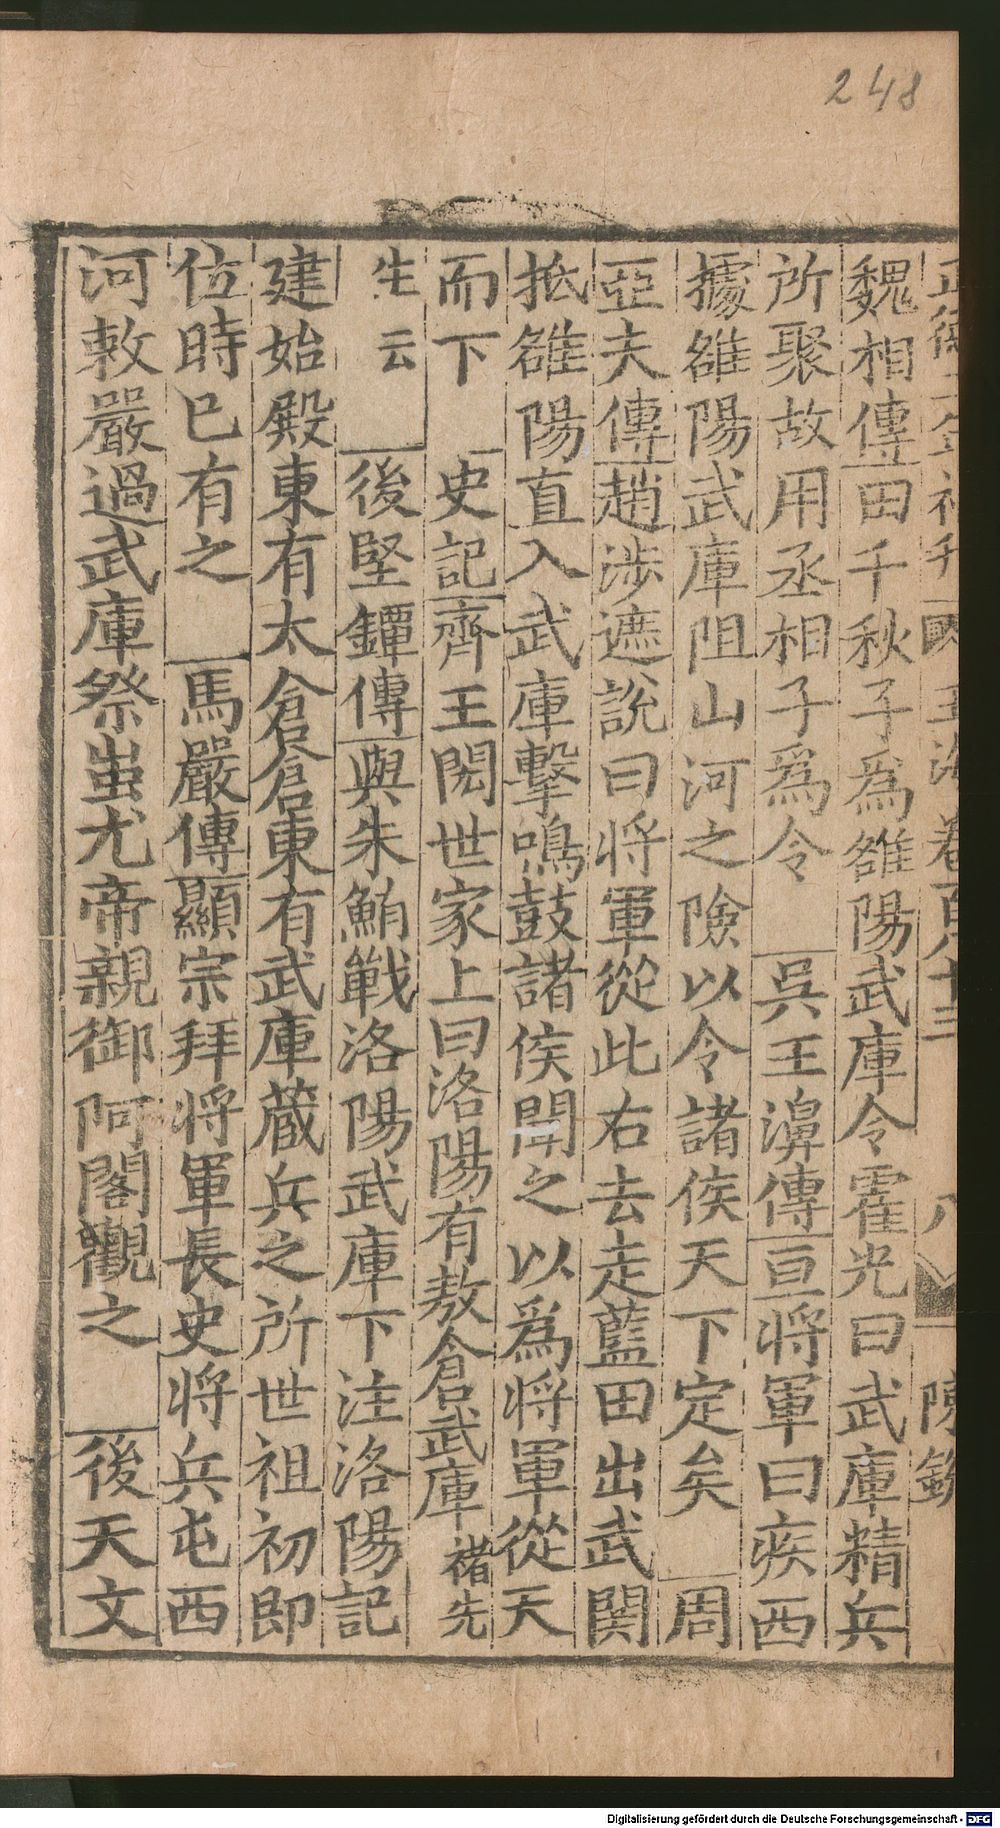 248
魏相傳田千秋子爲雒陽武庫令霍光曰武庫精兵
所聚故用丞相子爲令 吳王濞傳亘將軍曰疾西
據雒陽武庫阻山河之險以令諸侯天下定矣 周
亞夫傳趙涉遮說曰將軍從此右去走藍田出武関
抵雒陽直入武庫擊鳴鼓諸侯聞之以爲將軍從天
而下 史記齊王閎世家上曰洛陽有敖倉武庫褚先
生云 後堅鐔傳與朱鮪戰洛陽武庫下注洛陽記
建始殿東有太倉倉東有武庫藏兵之所世祖初即
位時已有之 馬嚴傳顯宗拜將軍長史將兵屯西
河敕嚴過武庫祭蚩尤帝親御阿閣觀之 後天文
玉海卷百八十三 八
Digitalisierung gefördert durch die Deutsche Forschungsgemeinschaft - DFG